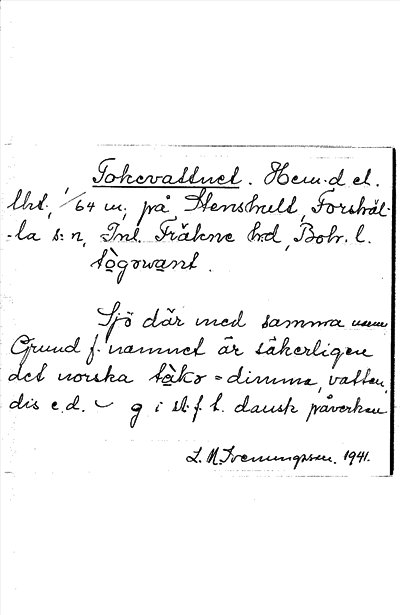 Tokevattnet. Hem.d el.
lht. 1/64 m, på Stenshult, Forshäl-
-la s:n, Inl. Fräkne hd, Bohr. l.
tògowant.
Sjö där med samma namn
Grund f. namnet är säkerligen
det norska tåko = dimma, vatten,
dis e.d. – g i st. f. t. dansk påverkan
L. M. Svenungsson. 1941.